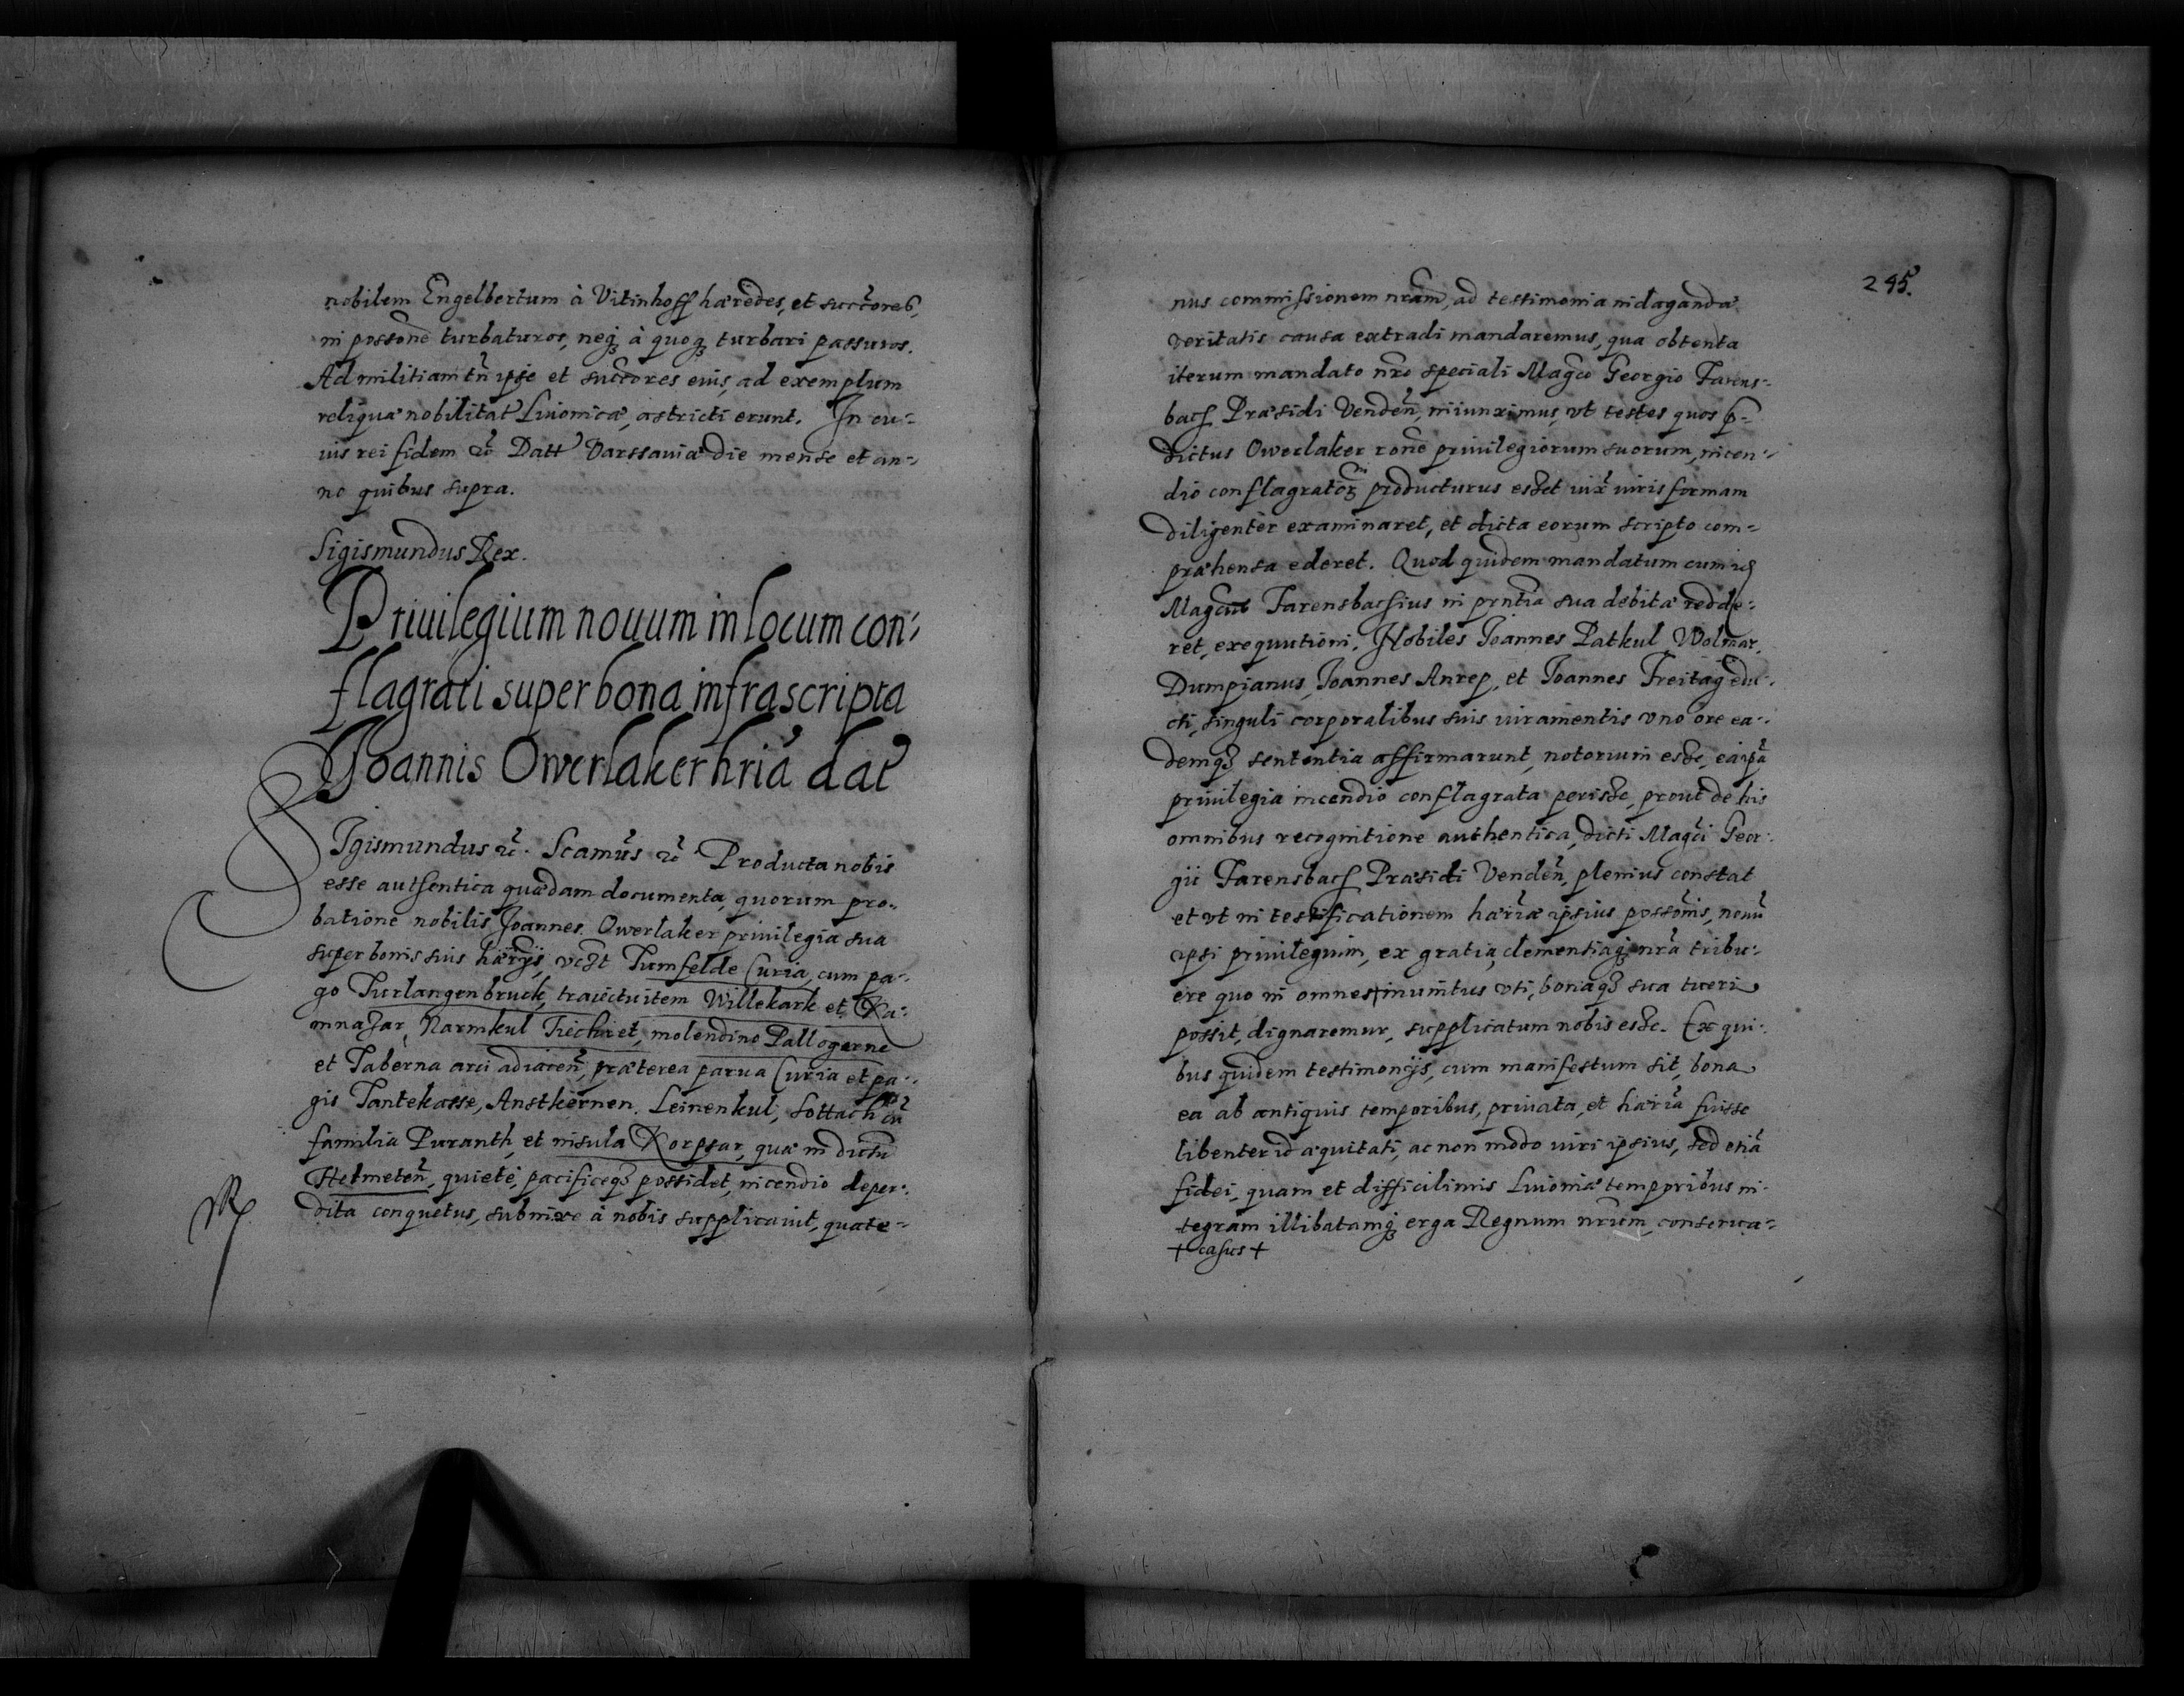 nobilem Engelbertum à Vitinhoff hæredes, et succ̃ores,
in possõne turbaturos, neq3 à quoq3 turbari passuros.
Ad militiam tñ ipse et succ̃ores eius, ad exemplum
reliquæ nobilitat Liuonicæ, astricti erunt. In cu-
ius rei fidem etc̃ Datt Varssauiæ die mense et an-
no quibus supra.
Sigismundus Rex.
Priuilegium nouum in locum con-
flagrati super bona infrascripta
Joannis Owerlaker hriã dat
SIgismundus etc̃. Scamus etc̃ Producta nobis
esse authentica quædam documenta, quorum pro-
batione nobilis Joannes Owerlaker priuilegia sua
super bonis suis hærijs, vczt Tumfelde Curia, cum pa-
go Turlangenbruck, traiectu item Willekark et Ka-
mnazar, Narmkul Tiechiret, molendino Pallogerne
et Taberna arci adiaceñ, præterea parua Curia et pa-
gis Tantekasse, Anstkernen, Leinenkul, Sottach cũ
familia Puranth, et insula Korpsar, quæ in dictu
Helmeteñ, quietè, pacificeq3 possidet, incendio deper-
dita conquetus, submixe à nobis supplicauit, quate-
245.
nus commissionem nrãm, ad testimonia indagandæ
veritatis causa extradi mandaremus, qua obtenta
iterum mandato nrõ speciali Magco Georgio Farens-
bach Præsidi Vendeñ, iniunximus, vt testes quos p̃-
dictus Owerlaker rõne priuilegiorum suorum, incen-
dio conflagrator3 producturus esset iux̃ iuris formam
diligenter examinaret, et dicta eorum scripto com-
præhensa ederet. Quod quidem mandatum cum is
Magcus Farensbachius in prñtia sua debitæ redde-
ret, exequutioni, Nobiles Joannes Patkul, Wolmar,
Dumpianus, Joannes Anrep, et Joannes Freitag edu-
cti, singuli corporalibus suis iuramentis vno ore ea-
demq3 sententia affirmarunt, notorium esse, ea ip̃a
priuilegia incendio conflagrata perisse, prout de his
omnibus recognitione authentica, dicti Magci Geor-
gii Farensbach Præsidi Vendeñ, plenius constat
et vt in testificationem hæriæ ipsius possõnis, nouũ
ipsi priuilegium, ex gratia, clementiaq3 nrã tribu-
ere quo in omnes + inuintus vti, bonaq3 sua tueri
possit, dignaremur, supplicatum nobis esse. Ex qui-
bus quidem testimonijs, cum manifestum sit, bona
ea ab antiquis temporibus, priuata, et hæriã fuisse
libenter id æquitati, ac non modo iuri ipsius, sed etiã
fidei, quam et difficilimis Liuoniæ temporibus in-
tegram illibatamq3 erga Regnum nrũm conserua-
+ casus +